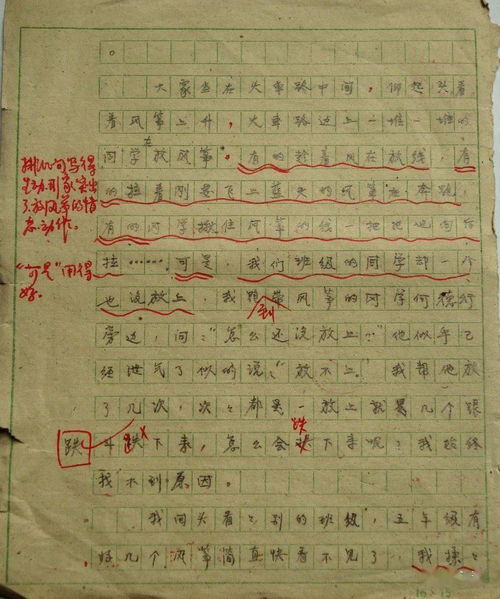 。
大家坐在火车路中间，仰起头看
着风筝上升，火车路边上一堆一堆的
在
同学放风筝。有的趁着风在放线，有
排比句写得
生动形象突出
了放风筝的情
态动作。
的拉着刚要飞上蓝天的风筝在奔跑，
有的同学揪住风筝的线一把把地向后
"可是"用得
好。
拉……可是，我们班级的同学却一个
也没放上，我跑带风筝的同学何德
到
旁边，问："怎么还没放上？"他似乎已
经泄气了似的说："放不上。"我帮他放
了几次，次々都是一放上就翻几个跟
跌
跌
斗跌下来，怎么会下来呢？我始终
找不到原因。
我回头看々别的班级，五年级有
好几个风筝简直快看不见了，我揉々